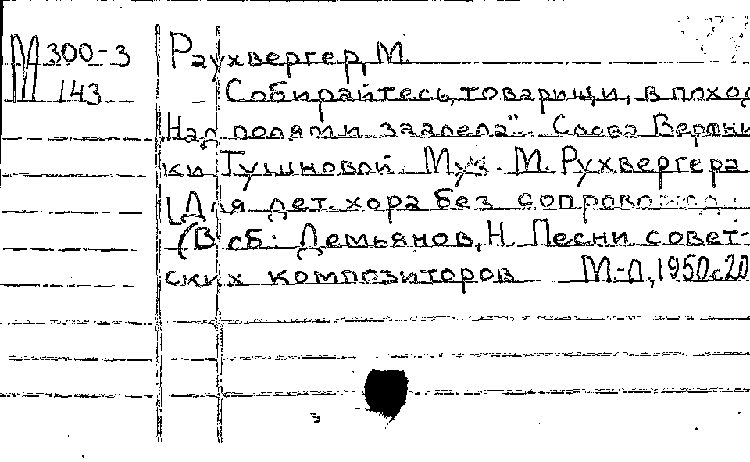 М 300-3
143
Раухвергер, М.
Собирайтесь, товарищи, в поход
"Над полями заалела". Слова Верони
ки Тушновой. Муз. М. Рухвергера
[Для дет. хора без сопровожд.
(В сб: Демьянов, Н. Песни совет-
ских композиторов М-Л, 1950 с20